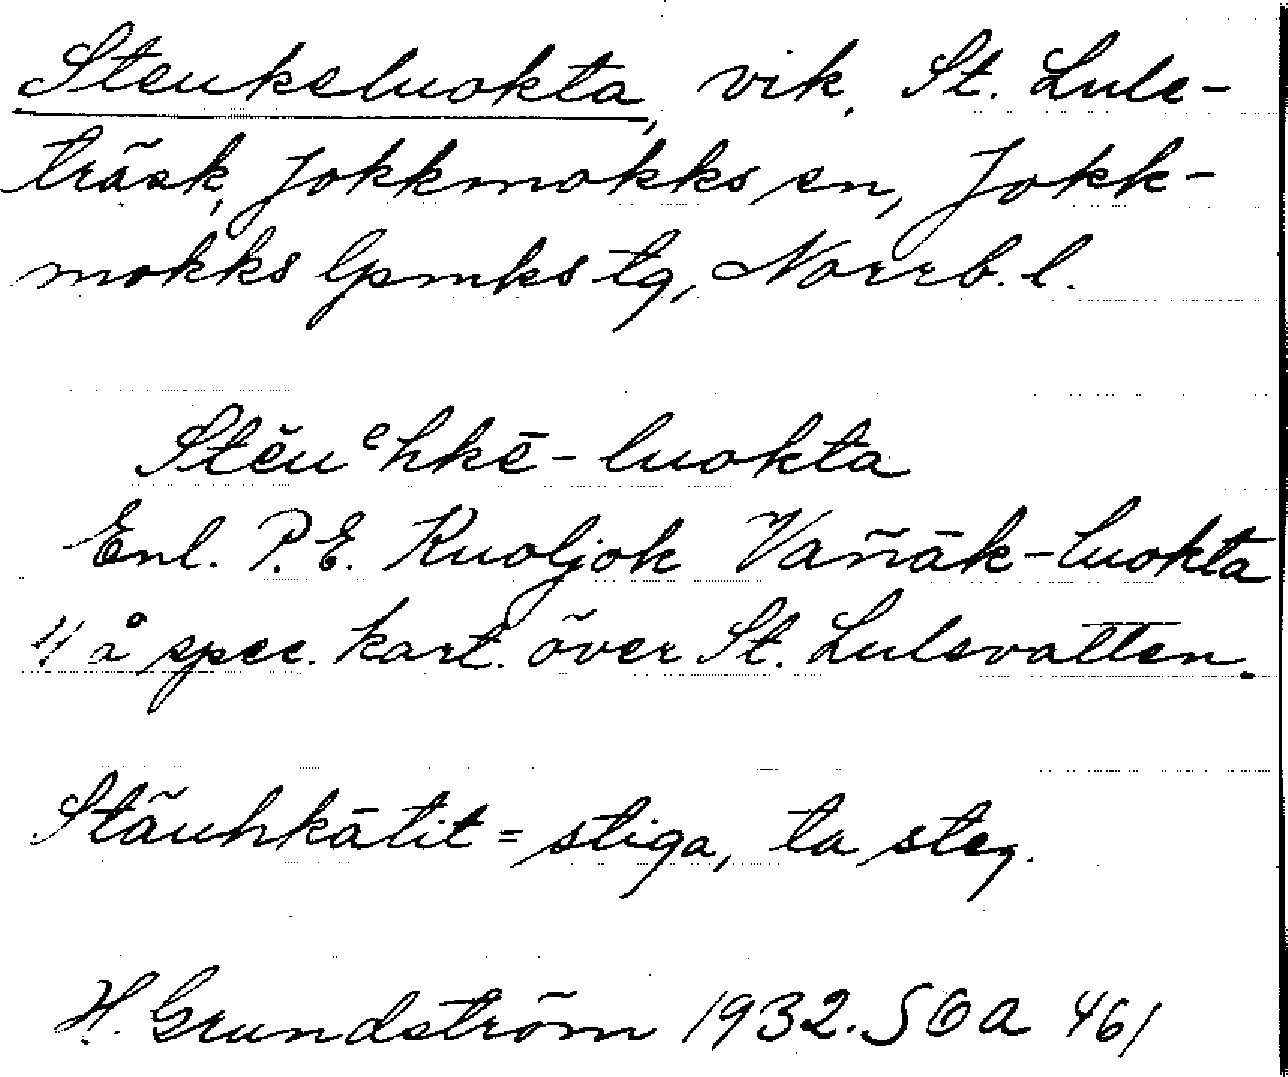 Steukeluokta, vik, St. Lule-
träsk, Jokkmokks sn, Jokk-
mokks lpmks tg, Norrb. l.
Stĕuᵉhkē-luokta
Enl. P.E. Kuoljok Vañāk-luokta
å spec. kart. över St. Lulevatten.
Stäuhkātit = stiga, ta steg.
H. Grundström 1932. SOA 461